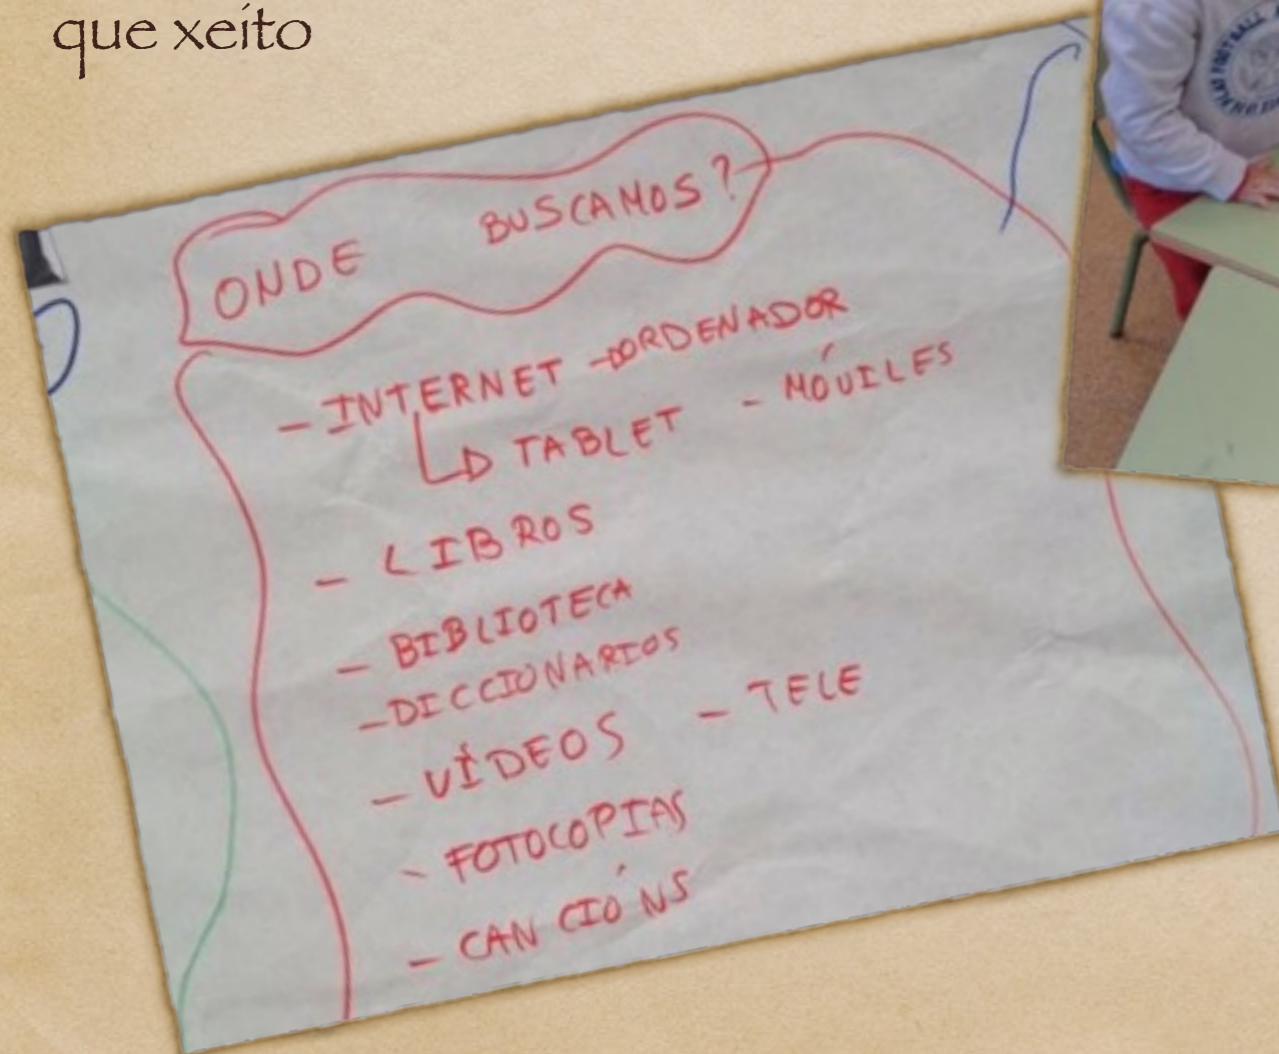 que xeito
ONDE BUSCAMOS?
- INTERNET → ORDENADOR
↳ TABLET - MÓVILES
- LIBROS
- BIBLIOTECA
- DICCIONARIOS
- VÍDEOS - TELE
- FOTOCOPIAS
- CANCIÓNS
FOOTBALL